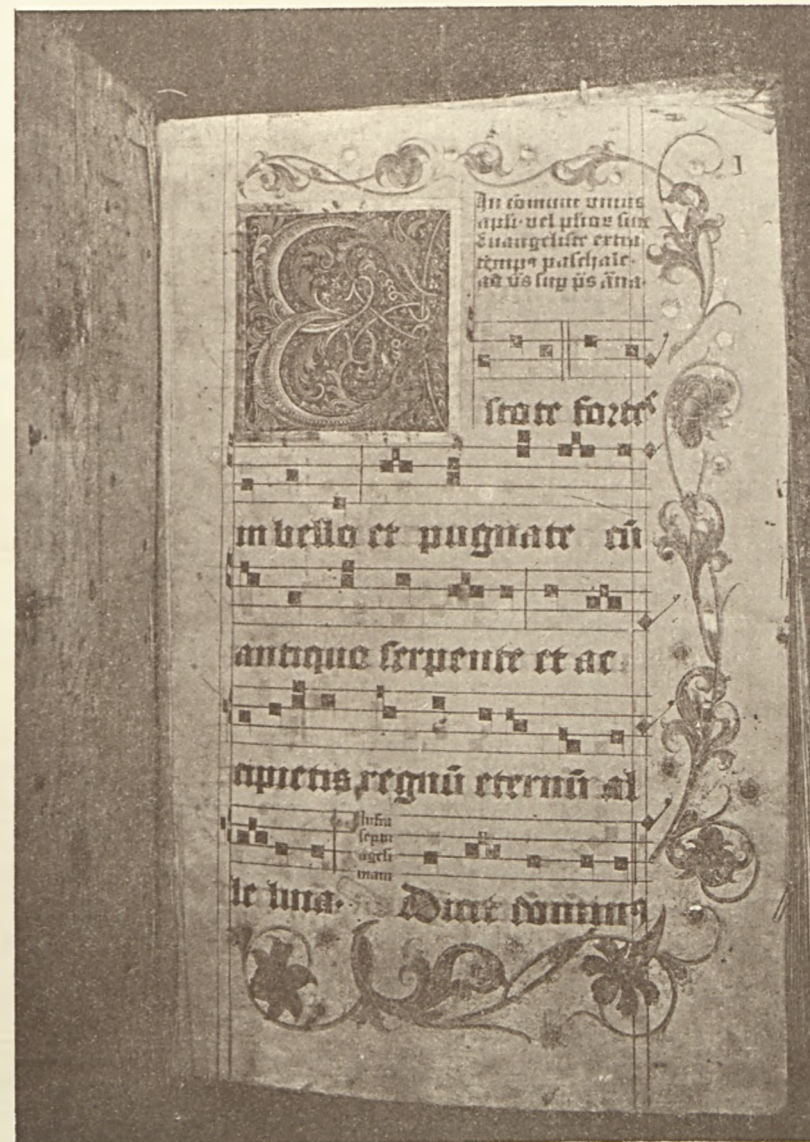 1
In cōmune unius
apli · vel pliorū siue
Euangeliste extra
tempꝰ paschale ·
ad v̄s sup p̄s āna ·
E
stote fortes
in bello et pugnate cū
antiquo serpente et ac
cipietis regnū eternū al
Infra
septu
agesi
mam
le luia · Dixit dominus